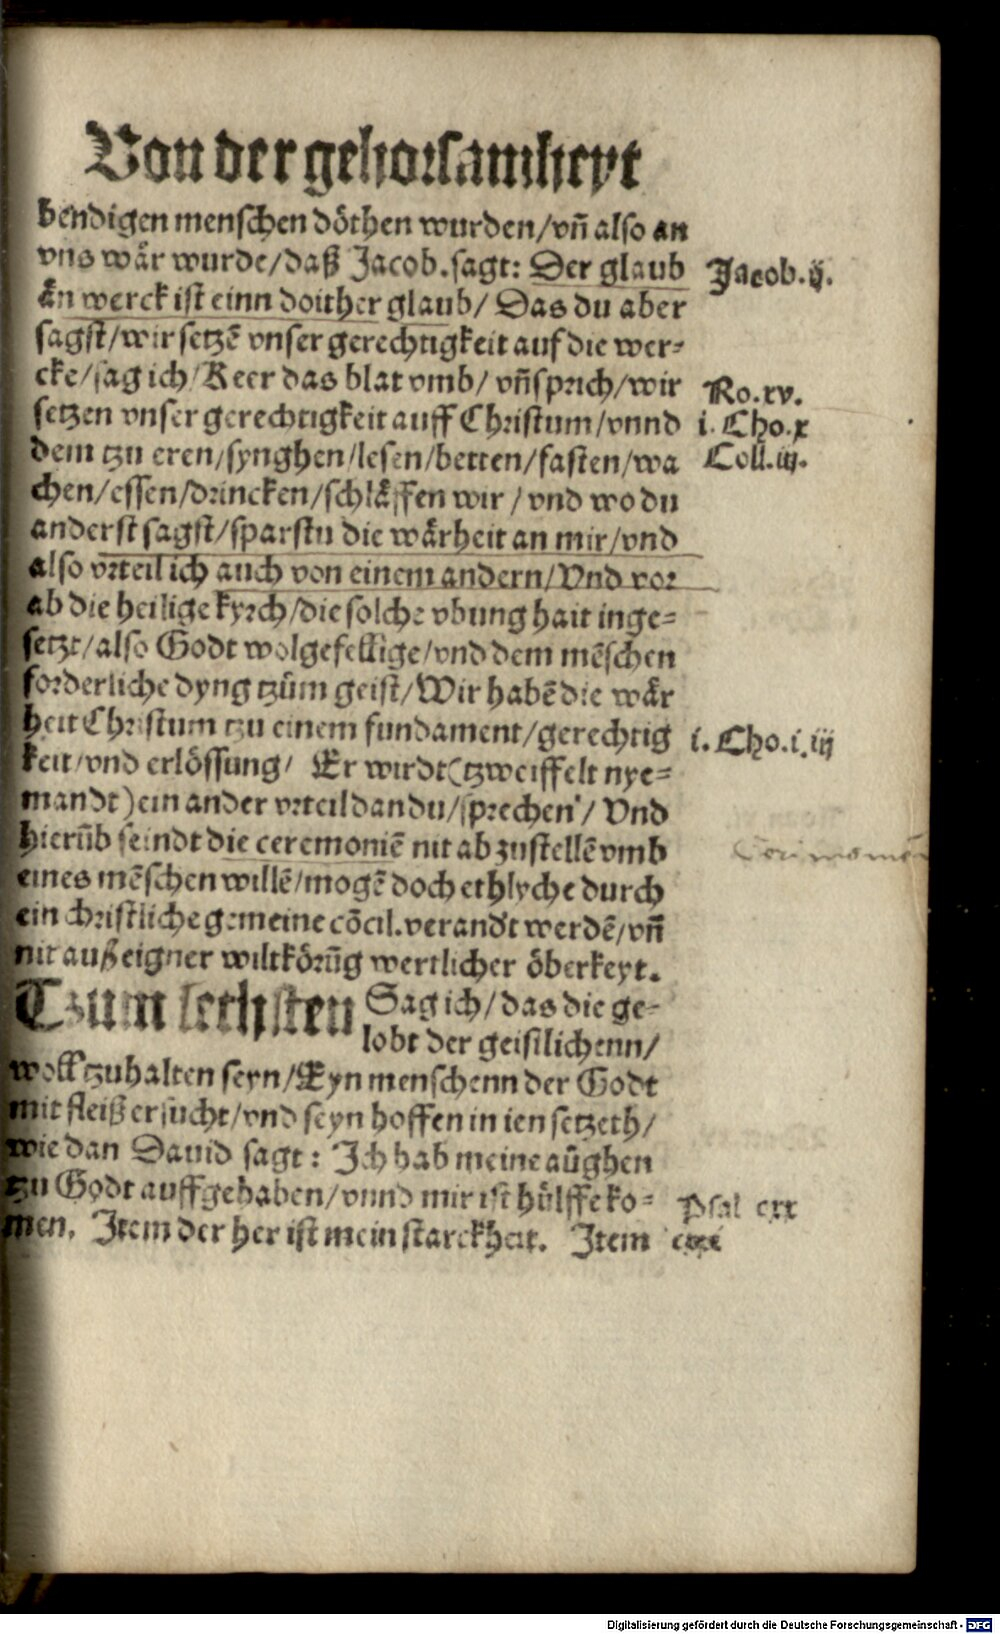 Von der gehorsamheyt
bendigen menschen döthen wurden/vñ also an
vns wår wurde/daß Jacob.sagt: Der glaub
ån werck ist einn doither glaub/ Das du aber
sagst/wir setzē vnser gerechtigkeit auf die wer-
cke/sag ich/Keer das blat vmb/ vñ sprich/wir
setzen vnser gerechtigkeit auff Christum/vnnd
dem tzu eren/synghen/lesen/betten/fasten/wa
chen/essen/drincken/schlåffen wir/ vnd wo du
anderst sagst/sparstu die wårheit an mir/vnd
also vrteil ich auch von einem andern/Vnd vor
ab die heilige kyrch/die solche vbung hait inge-
setzt/also Godt wolgefellige/vnd dem mēschen
forderliche dyng tzům geist/Wir habē die wår
heit Christum tzu einem fundament/gerechtig
keit/vnd erlössung/ Er wirdt(tzweiffelt nye-
mandt)ein ander vrteil dan du/sprechen/ Vnd
hierūb seindt die ceremoniē nit ab zustellē vmb
eines mēschen willē/mogē doch ethlyche durch
ein christliche gemeine cōcil.verandt werdē/vñ
nit auß eigner wiltkörūg wertlicher öberkeyt.
Tzum sechsten Sag ich/das die ge-
lobt der geistlichenn/
woll tzuhalten seyn/Eyn menschenn der Godt
mit fleiß ersucht/vnd seyn hoffen in ien setzeth/
wie dan Dauid sagt: Ich hab meine aůghen
tzu Godt auffgehaben/vnnd mir ist hülffe ko-
men. Item der her ist mein starckheit. Item
Jacob.ij.
Ro.xv.
i.Cho.x
Coll.iij.
i.Cho.i.iij
Psal cxx
Digitalisierung gefördert durch die Deutsche Forschungsgemeinschaft - DFG